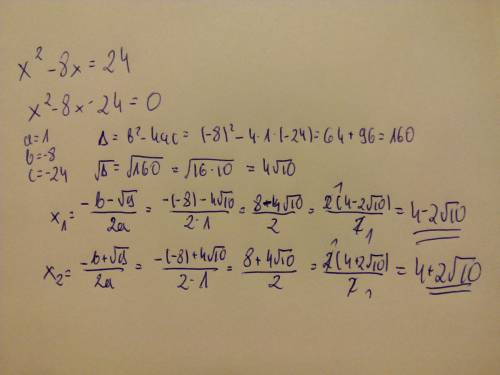 x² - 8x = 24
x² - 8x - 24 = 0
a = 1 Δ = b² - 4ac = (-8)² - 4·1·(-24) = 64 + 96 = 160
b = -8
c = -24 √Δ = √160 = √16·10 = 4√10
x₁ = (-b - √Δ)/2a = (-(-8) - 4√10)/2·1 = (8 - 4√10)/2 = 2(4 - 2√10)/2 = 4 - 2√10
x₂ = (-b + √Δ)/2a = (-(-8) + 4√10)/2·1 = (8 + 4√10)/2 = 2(4 + 2√10)/2 = 4 + 2√10